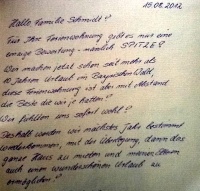 15.08.2012
Hallo Familie Schmidt!
Für Ihre Ferienwohnung gibt es nur eine
einzige Bewertung - nämlich SPITZE!
Wir machen jetzt schon seit mehr als
10 Jahren Urlaub im Bayrischen Wald,
diese Ferienwohnung ist aber mit Abstand
die Beste die wir je hatten!
Wir fühlen uns sofort wohl!
Deshalb werden wir nächstes Jahr bestimmt
wiederkommen, mit der Überlegung, dann das
ganze Haus zu mieten und meinen Eltern
auch einen wunderschönen Urlaub zu
ermöglichen!